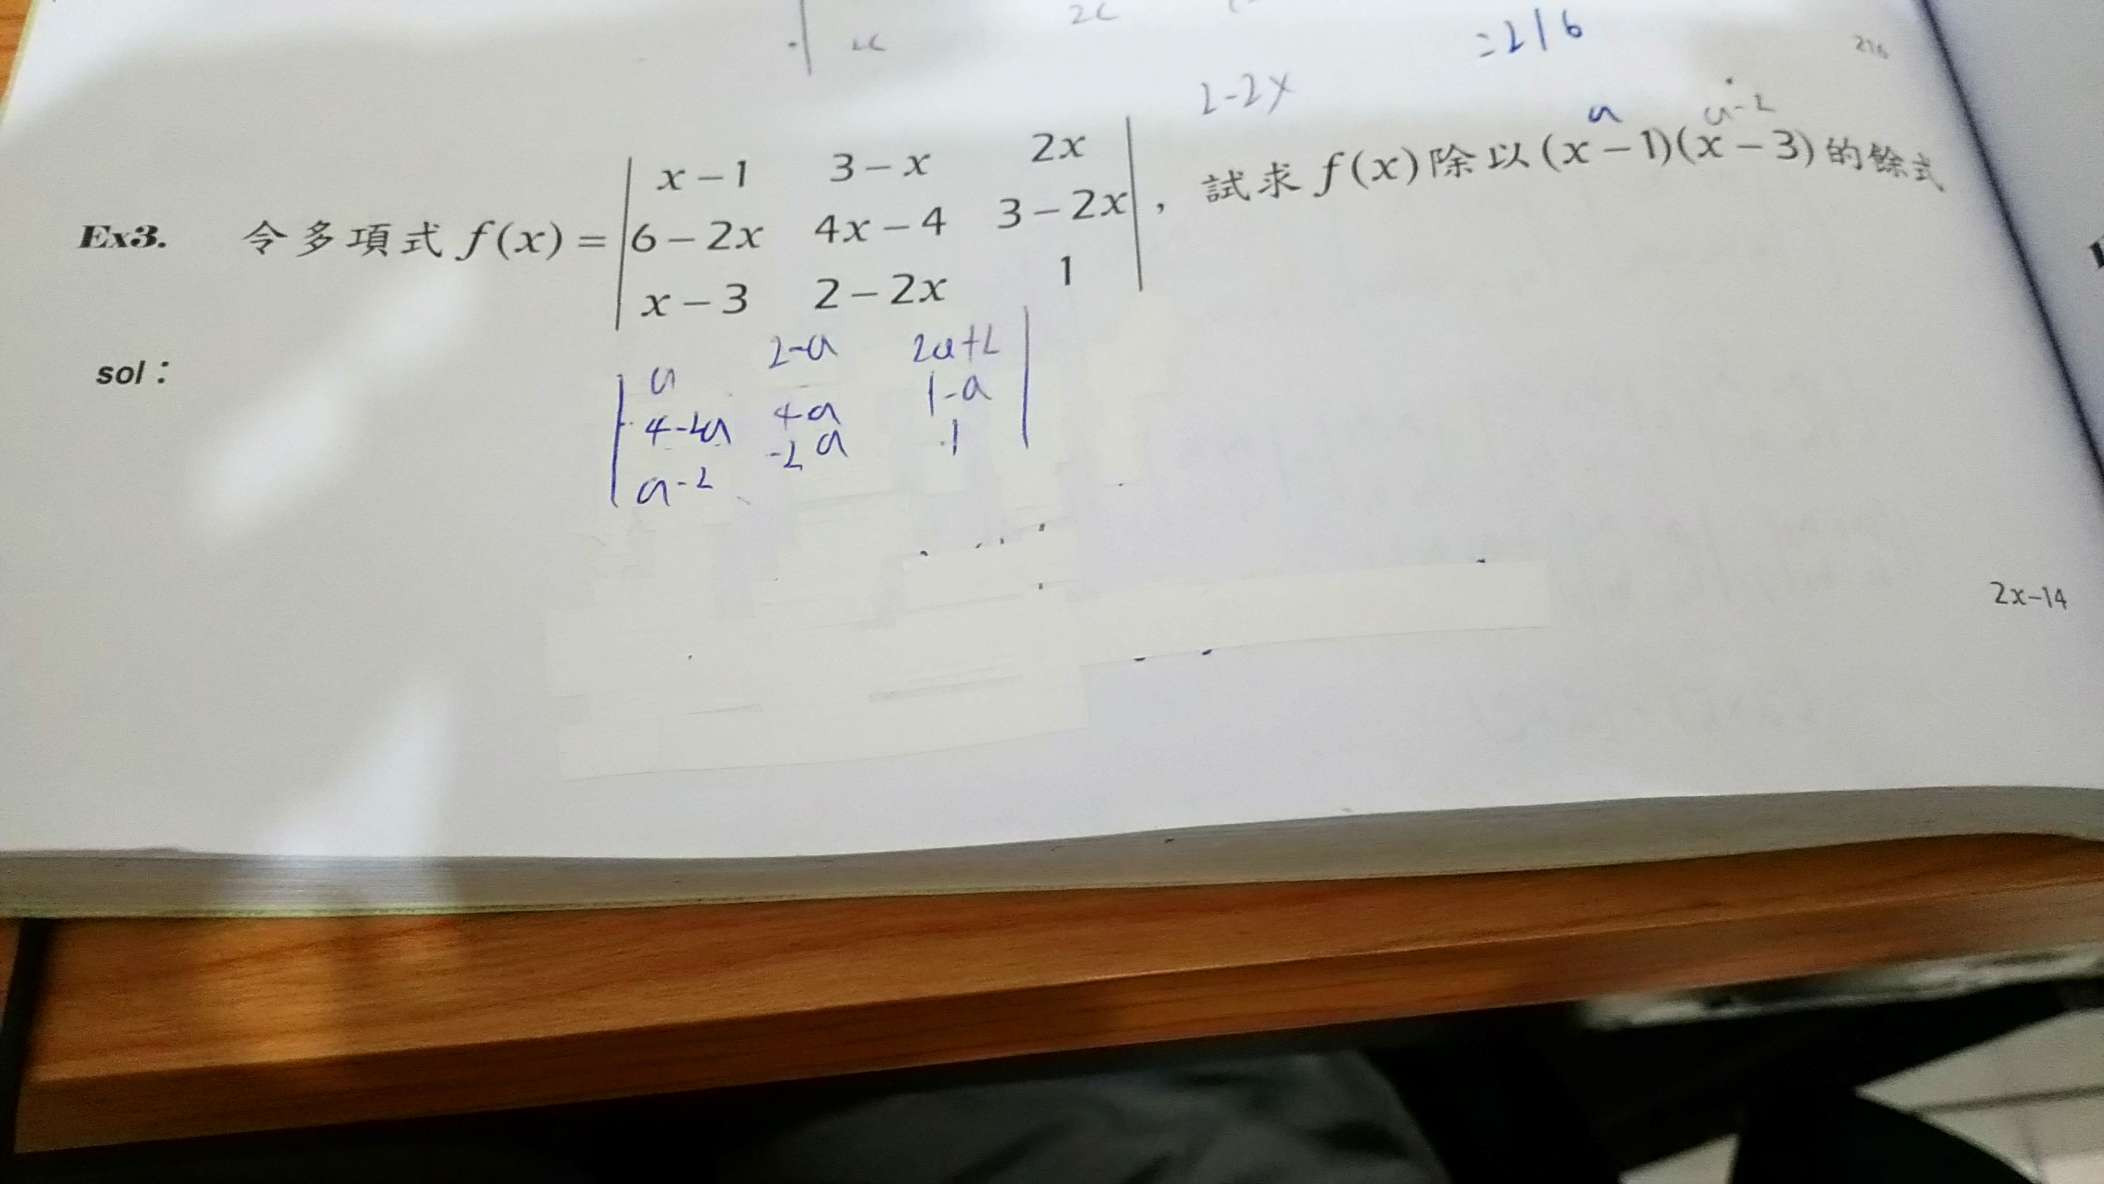 2c
2c
=216
216
2-2x
a
a-2
x-1 3-x 2x
Ex3. 令多項式 f(x) = 6-2x 4x-4 3-2x , 試求 f(x) 除以 (x-1)(x-3) 的餘式
x-3 2-2x 1
sol :
a 2-a 2a+2
4-2a 4a 1-a
a-2 -2a 1
2x-14